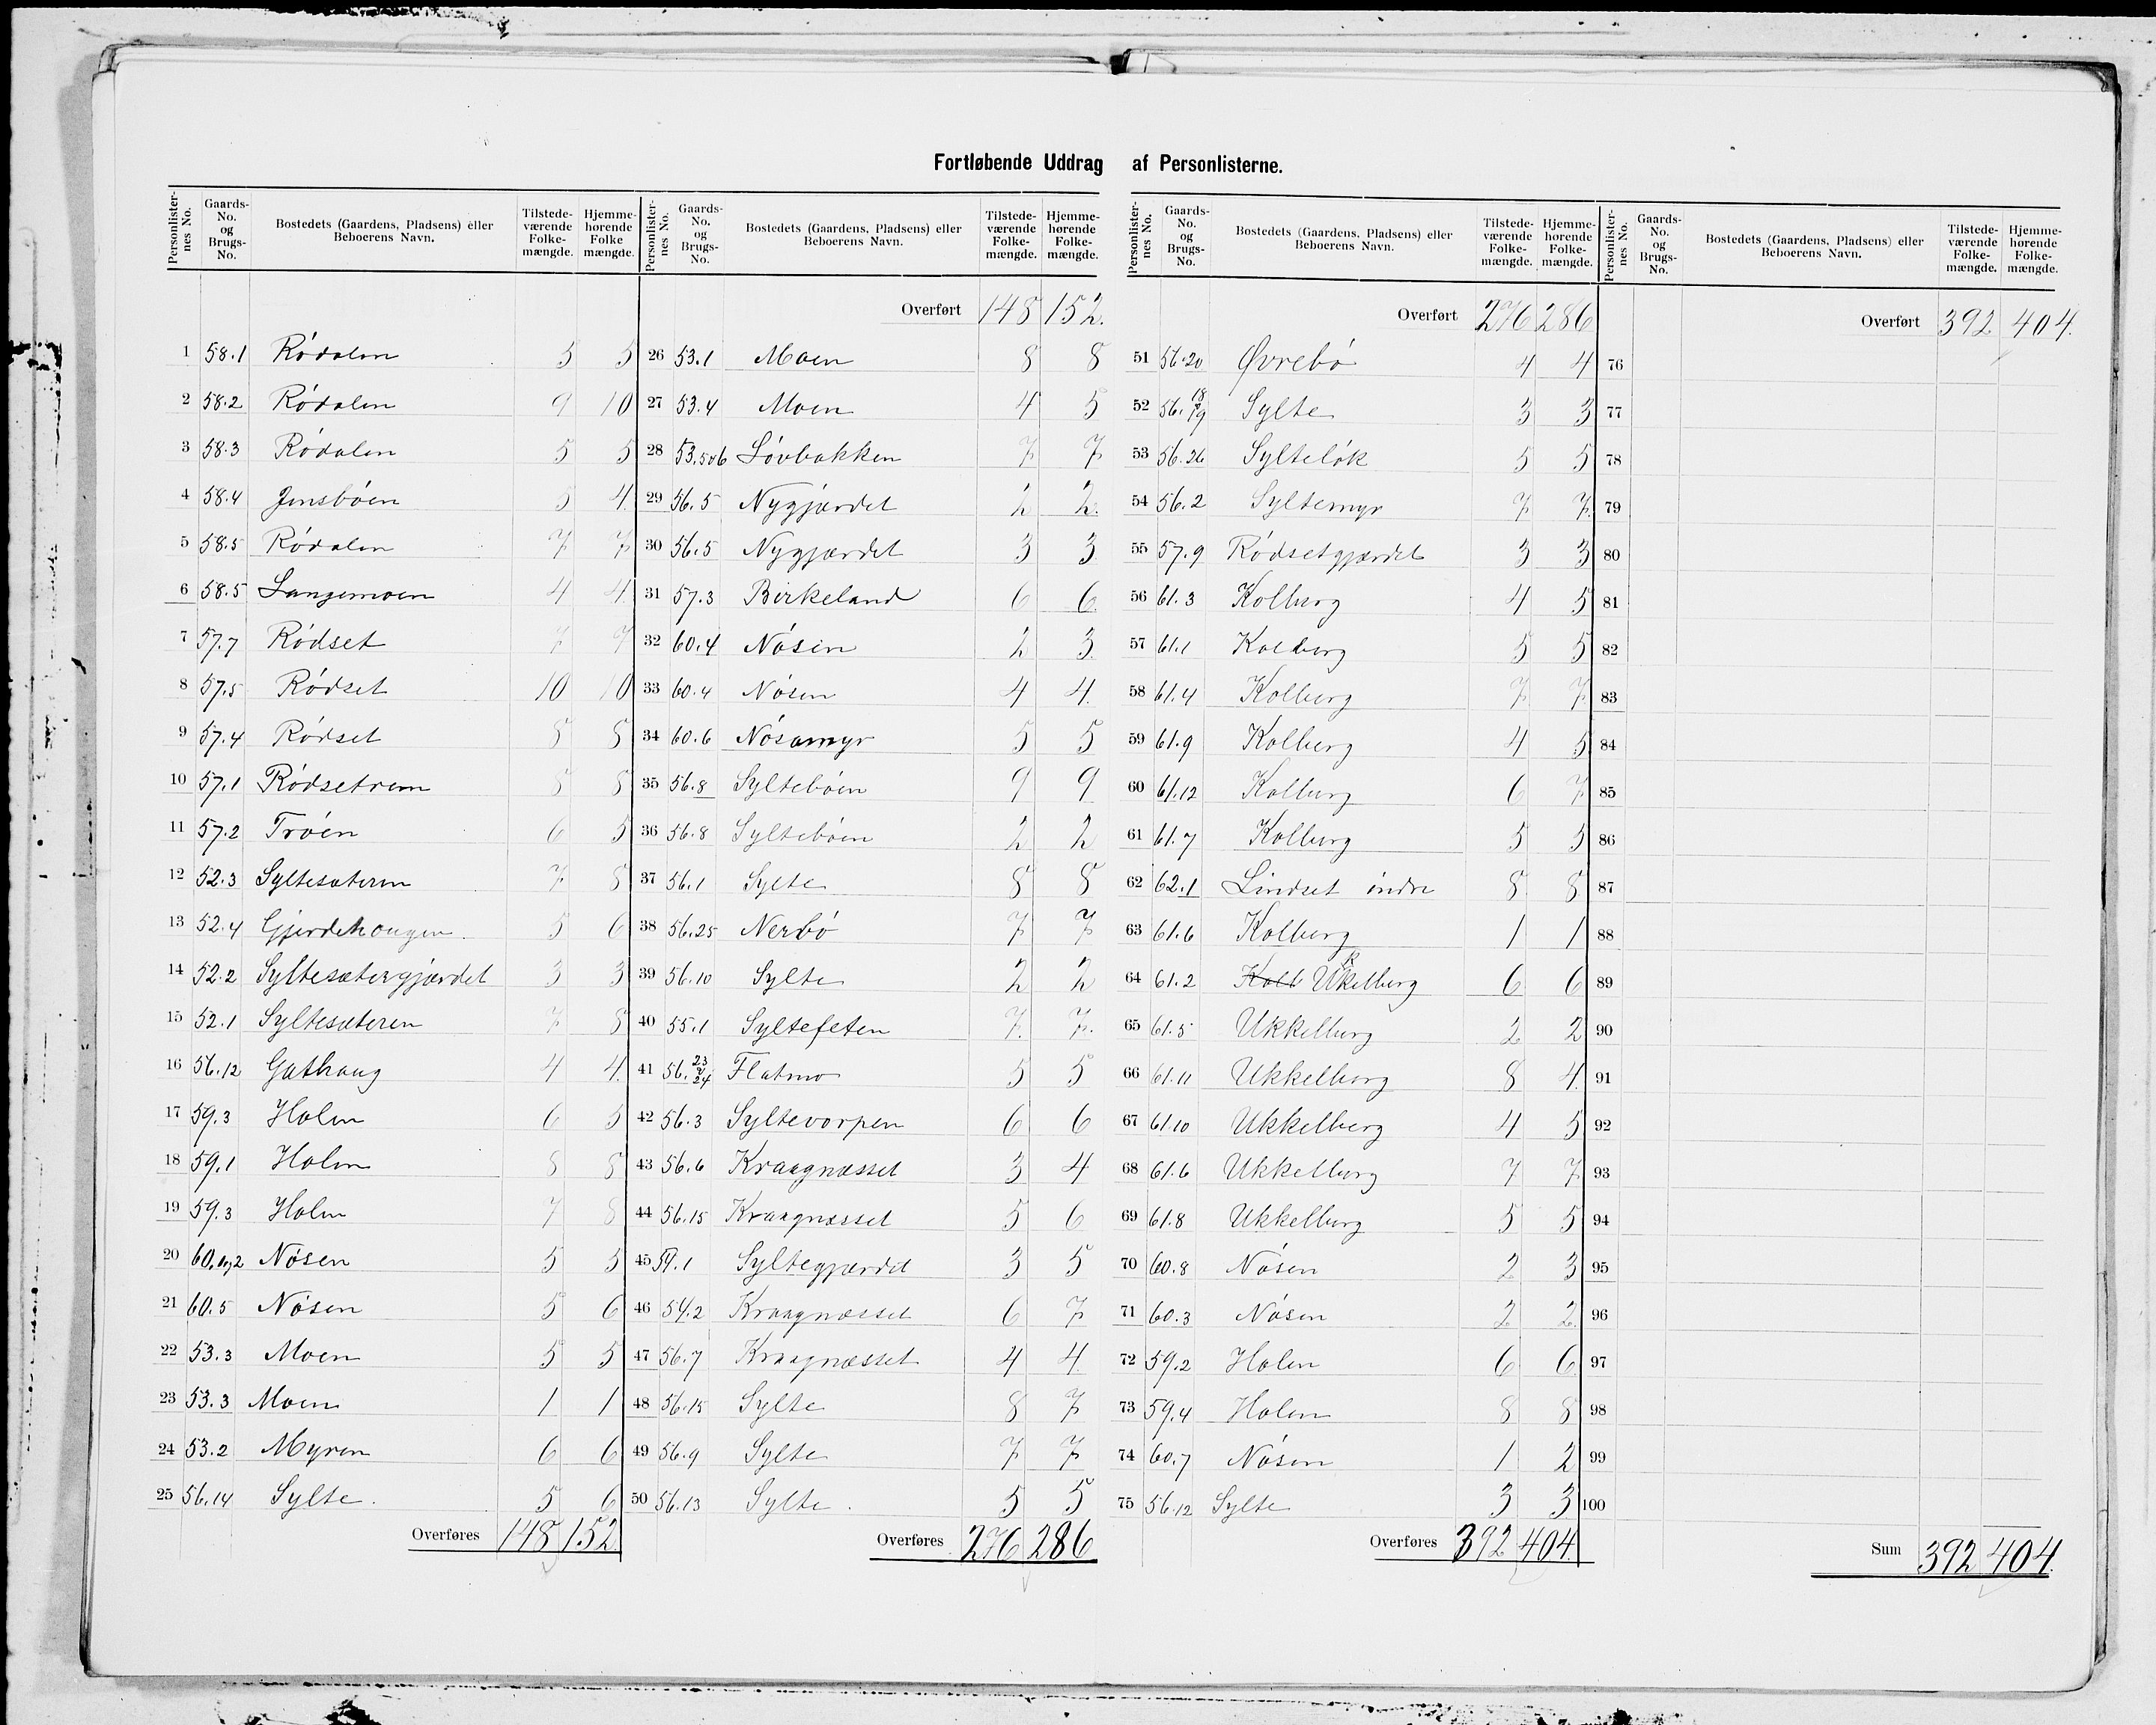 Fortløbende Uddrag af Personlisterne.
Personlister-nes No. Gaards-No. og Brugs-No. Bostedets (Gaardens, Pladsens) eller Beboerens Navn. Tilstede-værende Folke-mængde. Hjemme-hørende Folke mængde.
1 58.1 Rødalen 5 5
2 58.2 Rødalen 9 10
3 58.3 Rødalen 5 5
4 58.4 Jensbøen 5 4
5 58.5 Rødalen 7 7
6 58.5 Langemoen 4 4
7 57.7 Rødset 7 7
8 57.5 Rødset 10 10
9 57.4 Rødset 8 8
10 57.1 Rødsetrem 8 8
11 57.2 Trøen 6 5
12 52.3 Syltesæteren 7 8
13 52.4 Gjerdehougen 5 6
14 52.2 Syltesætergjærdet 3 3
15 52.1 Syltesæteren 7 8
16 56.12 Gathaug 4 4
17 59.3 Holen 6 5
18 59.1 Holen 8 8
19 59.3 Holen 7 8
20 60.1og2 Nøsen 5 5
21 60.5 Nøsen 5 6
22 53.3 Moen 5 5
23 53.3 Moen 1 1
24 53.2 Myren 6 6
25 56.14 Sylte. 5 6
Overføres 148 152
Personlister-nes No. Gaards-No. og Brugs-No. Bostedets (Gaardens, Pladsens) eller Beboerens Navn. Tilstede-værende Folke-mængde. Hjemme-hørende Folke-mængde.
Overført 148 152.
26 53.1 Moen 8 8
27 53.4 Moen 4 5
28 53.5o6 Løvbakken 7 7
29 56.5 Nygjærdet 2 2
30 56.5 Nygjærdet 3 3
31 57.3 Birkeland 6 6
32 60.4 Nøsen 2 3
33 60.4 Nøsen 4 4
34 60.6 Nøsamyr 5 5
35 56.8 Syltebøen 9 9
36 56.8 Syltebøen 2 2
37 56.1 Sylte 8 8
38 56.25 Nerbø 7 7
39 56.10 Sylte 2 2
40 55.1 Syltefeten 7 7
41 56.23 o 24 Flatmo 5 5
42 56.3 Syltevorpen 6 6
43 56.6 Kraagnæsset 3 4
44 56.15 Kraagnæsset 5 6
45 54.1 Syltegjærdet 3 5
46 54.2 Kraagnæsset 6 7
47 56.7 Kraagnæsset 4 4
48 56.15 Sylte 8 7
49 56.9 Sylte 7 7
50 56.13 Sylte. 5 5
Overføres 276 286
Personlister-nes No. Gaards-No. og Brugs-No. Bostedets (Gaardens, Pladsens) eller Beboerens Navn. Tilstede-værende Folke-mængde. Hjemme-hørende Folke-mængde.
Overført 276 286
51 56.20 Øvrebø 4 4
52 56.18 o 19 Sylte 3 3
53 56.26 Sylteløk 5 5
54 56.2 Syltemyr 7 7
55 57.9 Rødsetgjærdet 3 3
56 61.3 Kolberg 4 5
57 61.1 Kolberg 5 5
58 61.4 Kolberg 7 7
59 61.9 Kolberg 4 5
60 61.12 Kolberg 6 7
61 61.7 Kolberg 5 5
62 62.1 Lindset indre 8 8
63 61.6 Kolberg 1 1
64 61.2 Kolb Ukkelberg 6 6
65 61.5 Ukkelberg 2 2
66 61.11 Ukkelberg 8 4
67 61.10 Ukkelberg 4 5
68 61.6 Ukkelberg 7 7
69 61.8 Ukkelberg 5 5
70 60.8 Nøsen 2 3
71 60.3 Nøsen 2 2
72 59.2 Holen 6 6
73 59.4 Holen 8 8
74 60.7 Nøsen 1 2
75 56.12 Sylte 3 3
Overføres 392 404.
Personlister-nes No. Gaards-No. og Brugs-No. Bostedets (Gaardens, Pladsens) eller Beboerens Navn. Tilstede-værende Folke-mængde. Hjemme-hørende Folke-mængde.
Overført 392 404.
76
77
78
79
80
81
82
83
84
85
86
87
88
89
90
91
92
93
94
95
96
97
98
99
100
Sum 392 404.